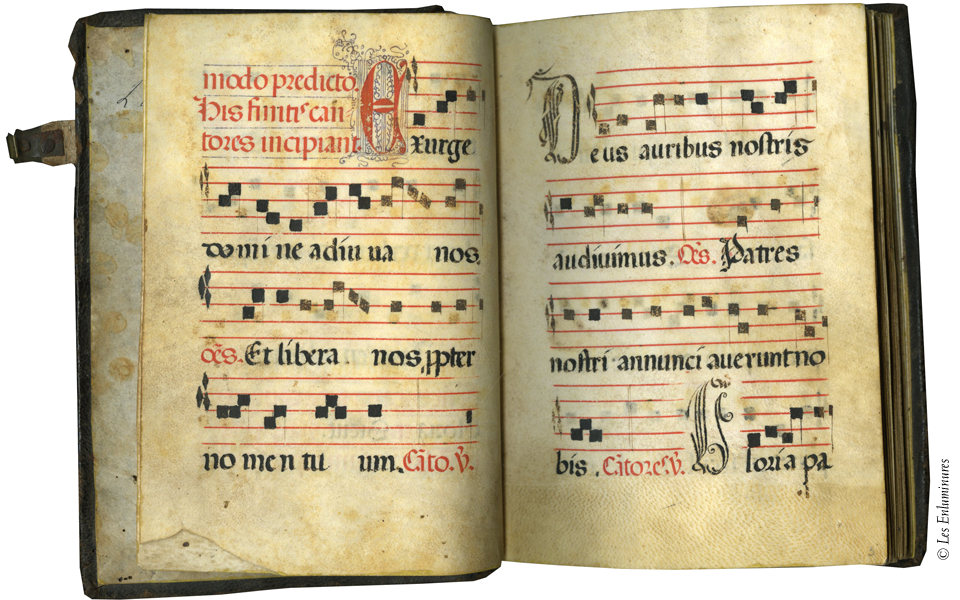 modo predicto.
His finitꝭ can
tores incipiant Exurge
domi ne adiu ua nos.
Oēs. Et libera nos, ꝓpter
no men tu um. Cāto. V̄.
Deus auribus nostris
audiuimus. Oēs. Patres
nostri annunci auerunt no
bis. Cātores. V̄. Gloria pa
© Les Enluminures